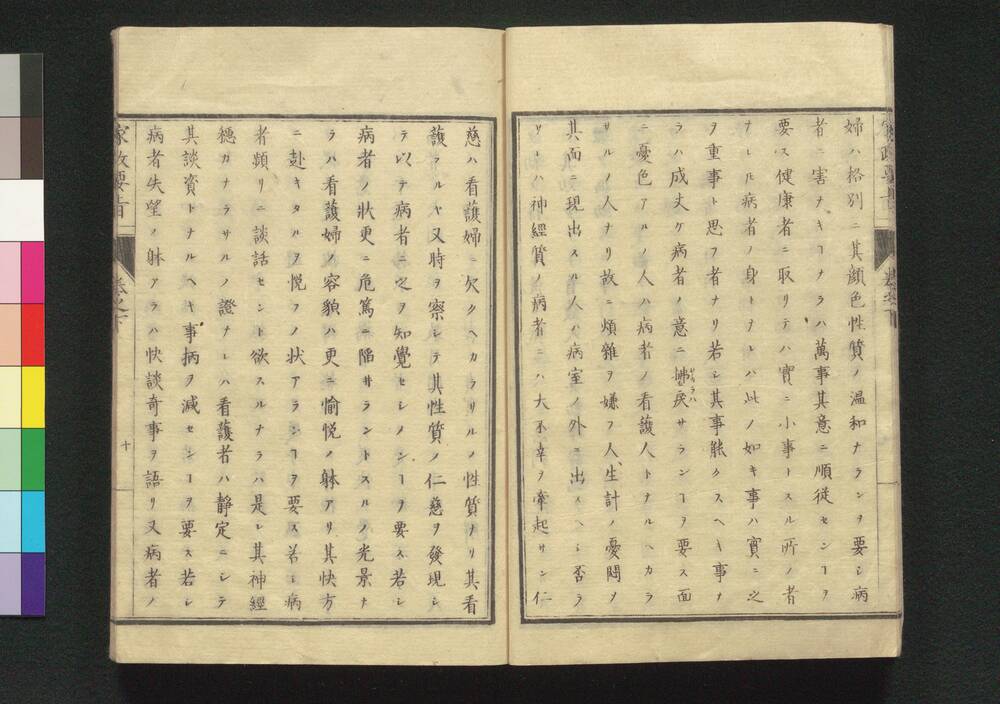 婦ハ格別ニ其顔色性質ノ温和ナランヲ要シ病
者ニ害ナキヿナラハ萬事其意ニ順従センヿヲ
要ス健康者ニ取リテハ實ニ小事トスル所ノ者
ナレ𪜈病者ノ身トナレハ此ノ如キ事ハ實ニ之
ヲ重事ト思フ者ナリ若シ其事能クスヘキ事ナ
ラハ成丈ケ病者ノ意ニ拂戻サランヿヲ要ス面
ニ憂色アルノ人ハ病者ノ看護人トナルヘカラ
サルノ人ナリ故ニ煩雜ヲ嫌フ人、生計ノ憂悶ヲ
其面ニ現出スル人ハ病室ノ外ニ出スヘシ否ラ
サレハ神經質ノ病者ニハ大不幸ヲ牽起サン仁
慈ハ看護婦ニ欠クヘカラサルノ性質ナリ其看
護ヲルヤ又時ヲ察シテ其性質ノ仁慈ヲ發現シ
テ以テ病者ニ之ヲ知覺セシメンヿヲ要ス若シ
病者ノ狀更ニ危篤ニ陥サラントスルノ光景ナ
ラハ看護婦ノ容貌ハ更ニ愉悦ノ躰アリ其快方
ニ赴キタルヲ悦フノ状アランヿヲ要ス若シ病
者頻リニ談話セント欲スルナラハ是レ其神經
穏カナラサルノ證ナレハ看護者ハ靜定ニシテ
其談資トナルヘキ事柄ヲ減センヿヲ要ス若シ
病者失望ノ躰アラハ快談奇事ヲ語リ又病者ノ
家政要旨
卷之下
十